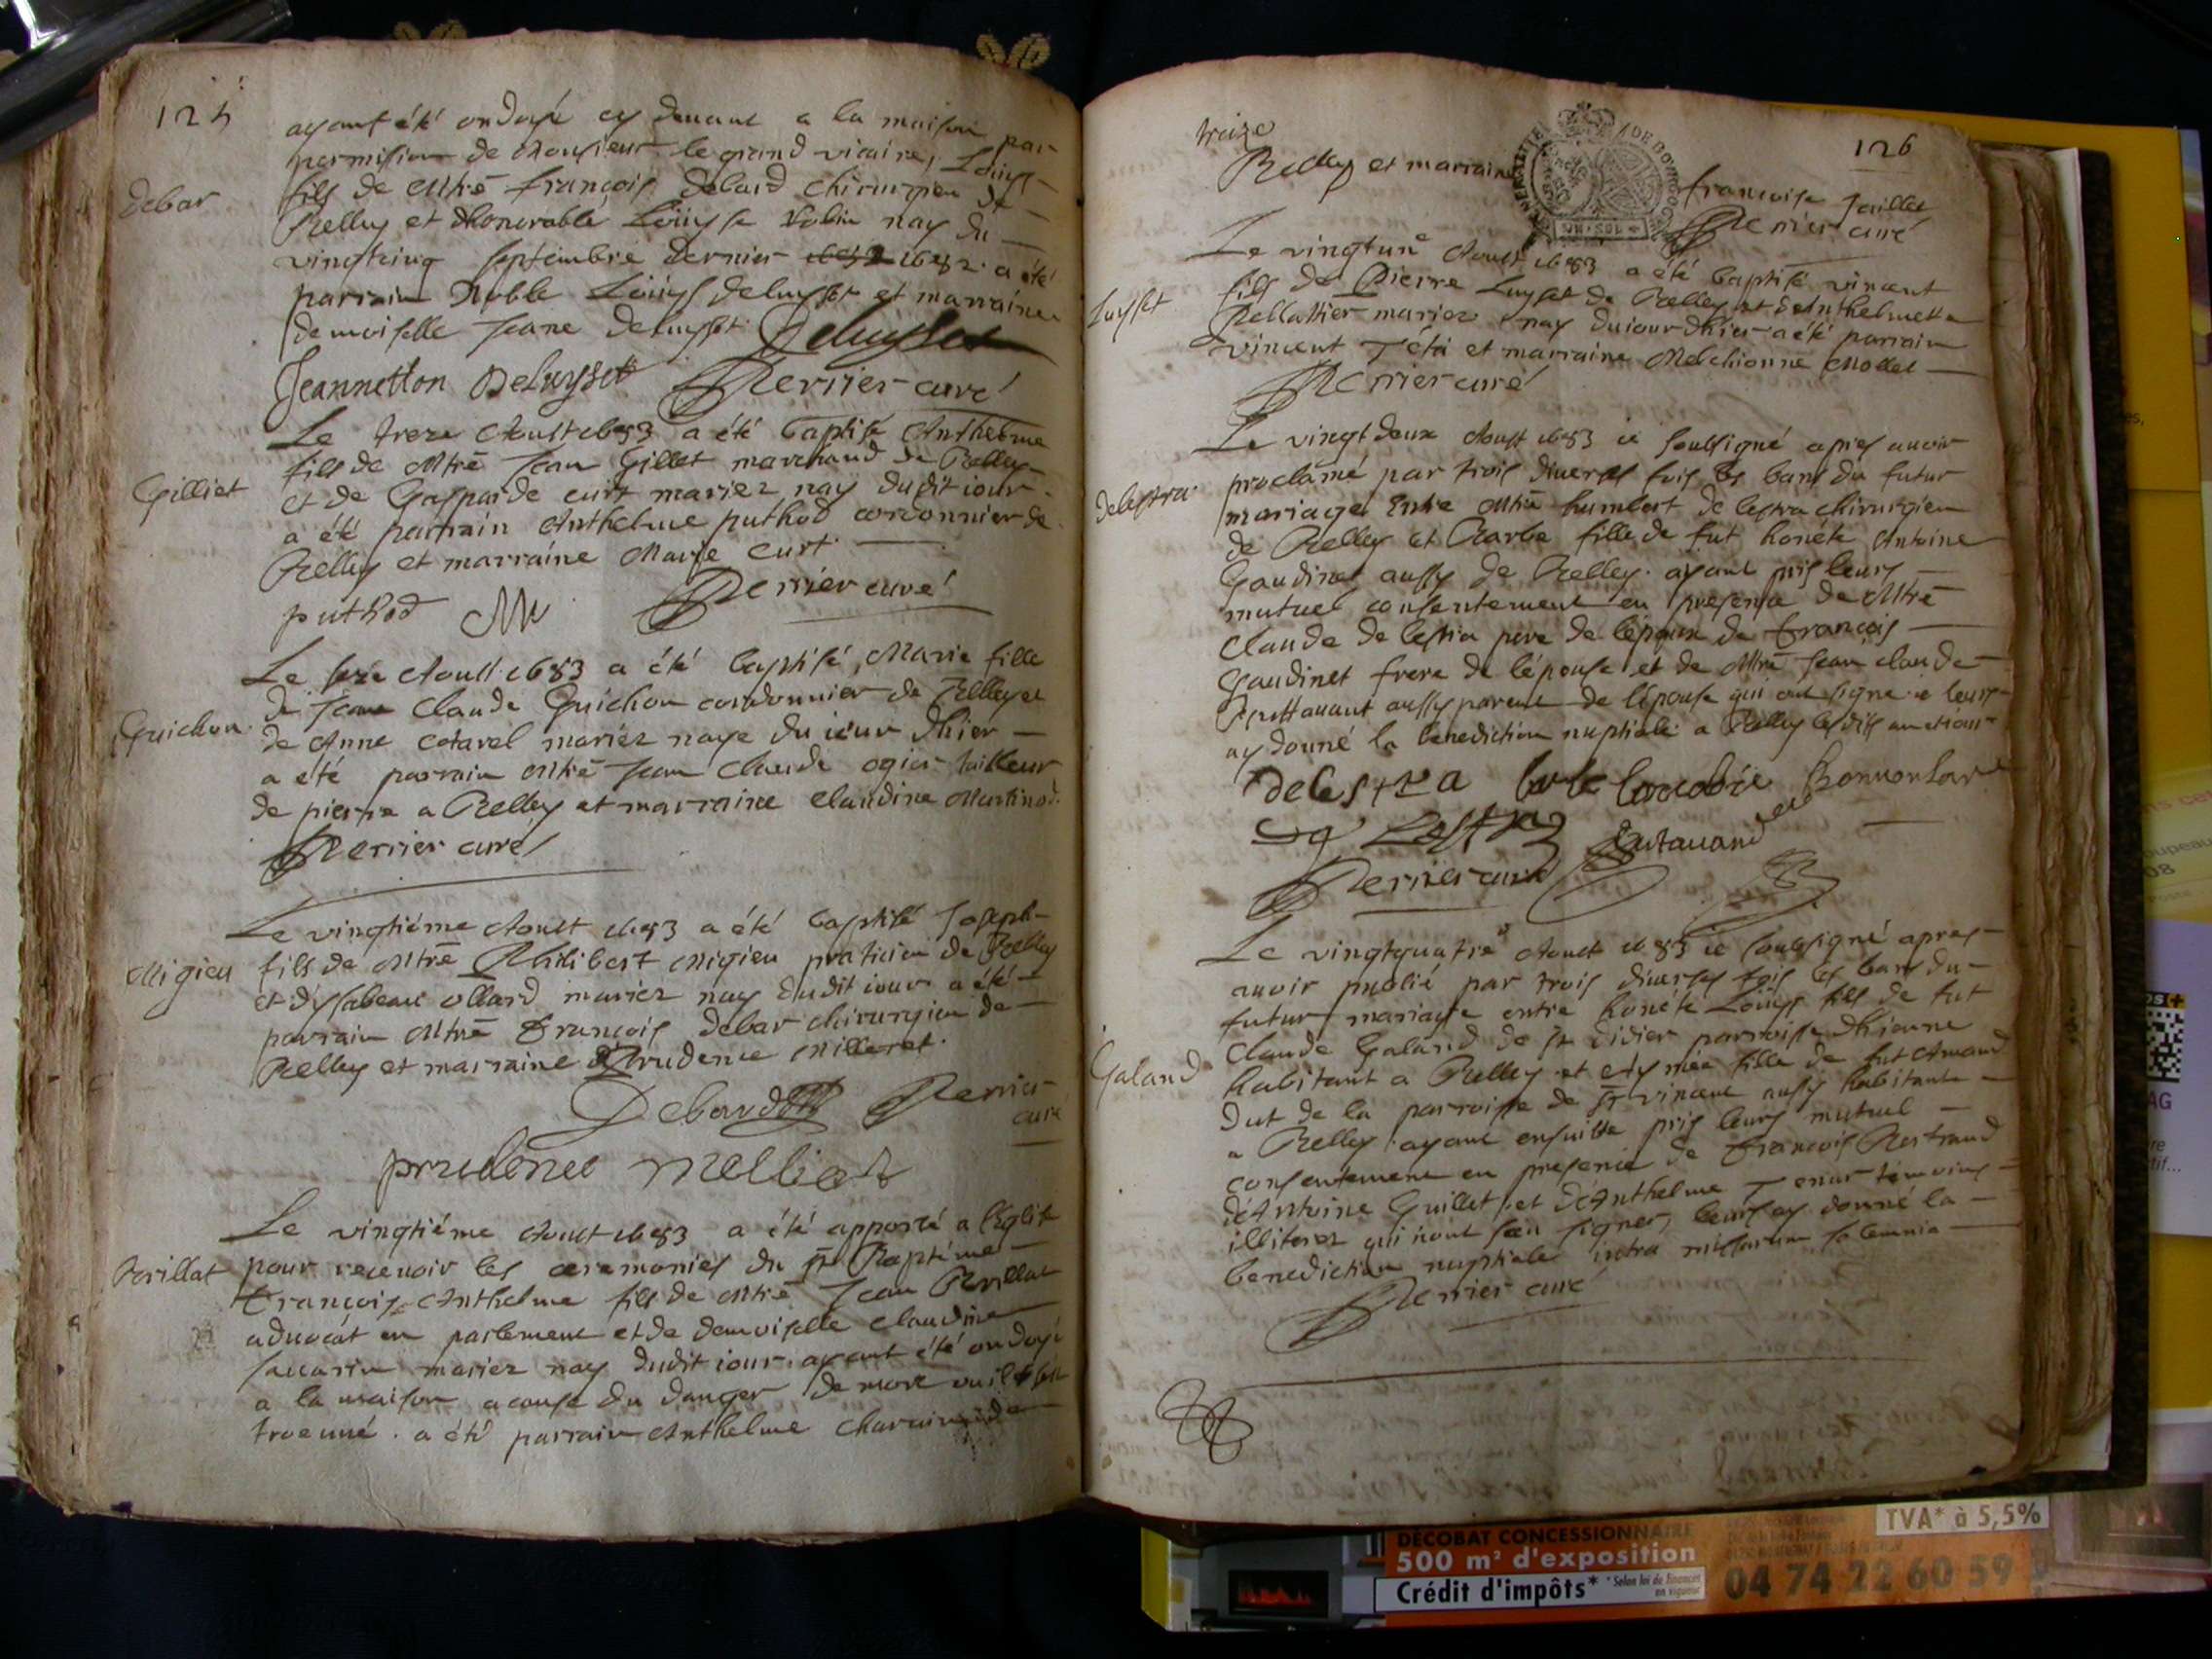 125
ayant été ondoyé cy devant a la maison par
permission de Monsieur le grand vicaire, Loüys
debar
fils de Mtre françois debard chirurgien de
Belley et dhonorable Loüyse Robin nay du
vingtcinq septembre dernier 1682 a été
parrain Noble Loüys deluyset et marraine
demoiselle Jeane deluyset Deluyset
Jeannetton Deluyset Perrier curé
Le treze Aoust 1683 a été baptisé Anthelme
fils de Mtre Jean Gillet marchand de Belley
Gilliet
et de Gasparde curt mariez nay dudit iour
a été parrain Anthelme puthod cordonnier de
Belley et marraine Marie Curt
puthod Perrier curé
Le Aoust 1683 a été baptisé, Marie fille
de Jean Claude Guichon cordonnier de Belley et
Guichon
de Anne Cotavel mariez naye du iour dhier
a été parrain Mtre Jean Claude ogier tailleur
de pierre a Belley et marraine Claudine Martinod
Perrier curé
Le vingtiéme Aoust 1683 a été baptisé Joseph
Migieu
fils de Mtre Philibert Migieu praticien de Belley
et dysabeau ollard mariez nay dudit iour a été
parrain Mtre François debar chirurgien de
Belley et marraine Prudence Milleret
Debard Perrier
curé
prudence melliert
Le vingtiéme Aoust 1683 a été apporté a l'Eglise
Brillat
pour recevoir les ceremonies du st Baptéme
François Anthelme fils de Mtre Jean Brillat
advocat en parlement et de demoiselle Claudine
mariez nay dudit iour ayant été ondoyé
a la maison a cause du danger de mort ou il
trouvé. a été parrain Anthelme
126
treize
Belley et marraine françoise Jaillet
GENERALITE DE BOURGOGNE
UN SOL
Perrier curé
Le vingtune Aoust 1683 a été baptisé vincent
Luyset
fils de Pierre Luyset de Belley et d'Anthelmette
Pellattier mariez nay du iour dhier a été parrain
vincent Téti et marraine Melchionne Mollet
Perrier curé
Le vingt deux Aoust 1683 ie soussigné apres avoir
proclamé par trois diverses fois les bans du futur
Delestra
mariage Entre Mtre humbert de lestra chirurgien
de Belley et Barbe fille de fut honéte Antoine
Gaudinet aussy de Belley. ayant pris leurs
mutuel consentement en presence de Mtre
Claude de lestra pere de l'époux de François
Gaudinet frere de l'épouse et de Mtre Jean claude
aussy parent de l'épouse qui ont signé ie leurs
ay donné la benediction nuptiale a Belley lesdits an et iour
delestra
Perrier curé
Le vingtquatre Aoust 1683 ie soussigné apres
avoir publié par trois diverses fois les bans du
futur mariage entre honéte Loüys fils de fut
Galand
Claude Galand de st Didier parroisse dhienne
habitant a Belley et Eymée fille de fut Amand
Dut de la parroisse de st vincent aussy habitante
a Belley ayant ensuitte pris leurs mutuel
consentement en presence de François Bertrand
d'Antoine Guillet et d'Anthelme Tenar témoins
illiterez qui n'ont sceu signer, leurs ay donné la
benediction nuptiale intra missarum solemnia
Perrier curé
DECOBAT CONCESSIONNAIRE
500 m² d'exposition
Crédit d'impôts*
* Selon loi de finances
en vigueur
TVA* à 5,5%
04 74 22 60 59